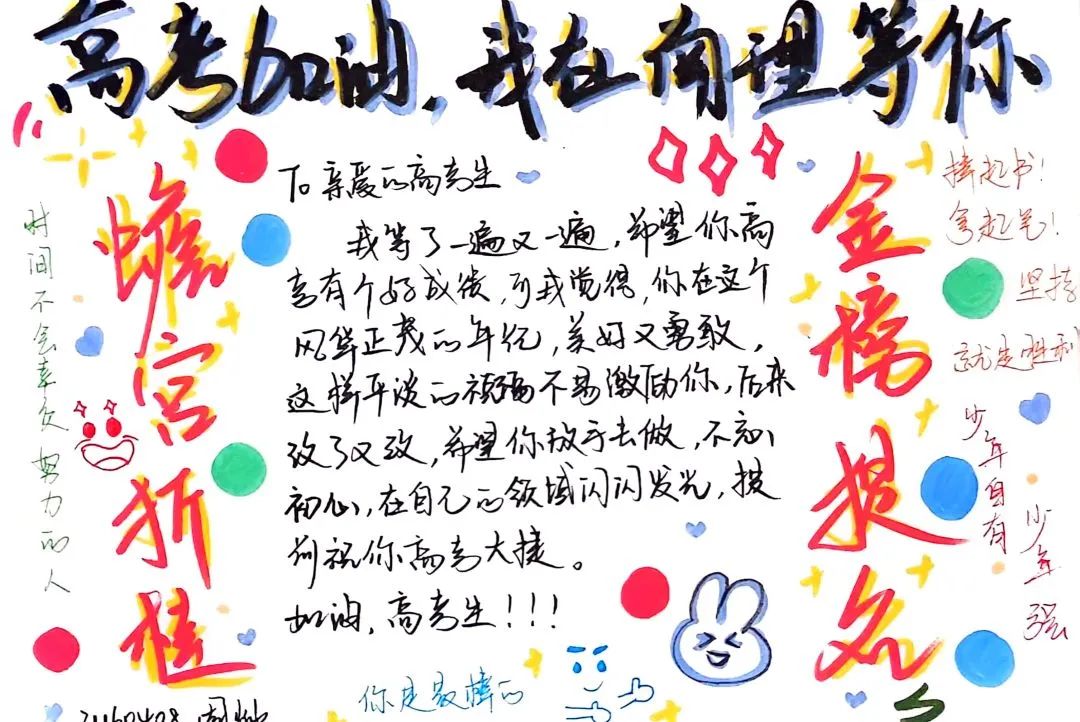 高考加油,我在南理等你
To 亲爱的高考生
我等了一遍又一遍,希望你高
考有个好成绩,可我觉得,你在这个
风华正茂的年纪,美好又勇敢,
这样平淡的祝福不易激励你,后来
改了又改,希望你放手去做,不忘
初心,在自己的领域闪闪发光,提
前祝你高考大捷。
加油,高考生!!!
时间不会辜负努力的人
蟾宫折桂
金榜提名
捧起书!
拿起笔!
坚持
就是胜利
少年自有
少年强
你是最棒的